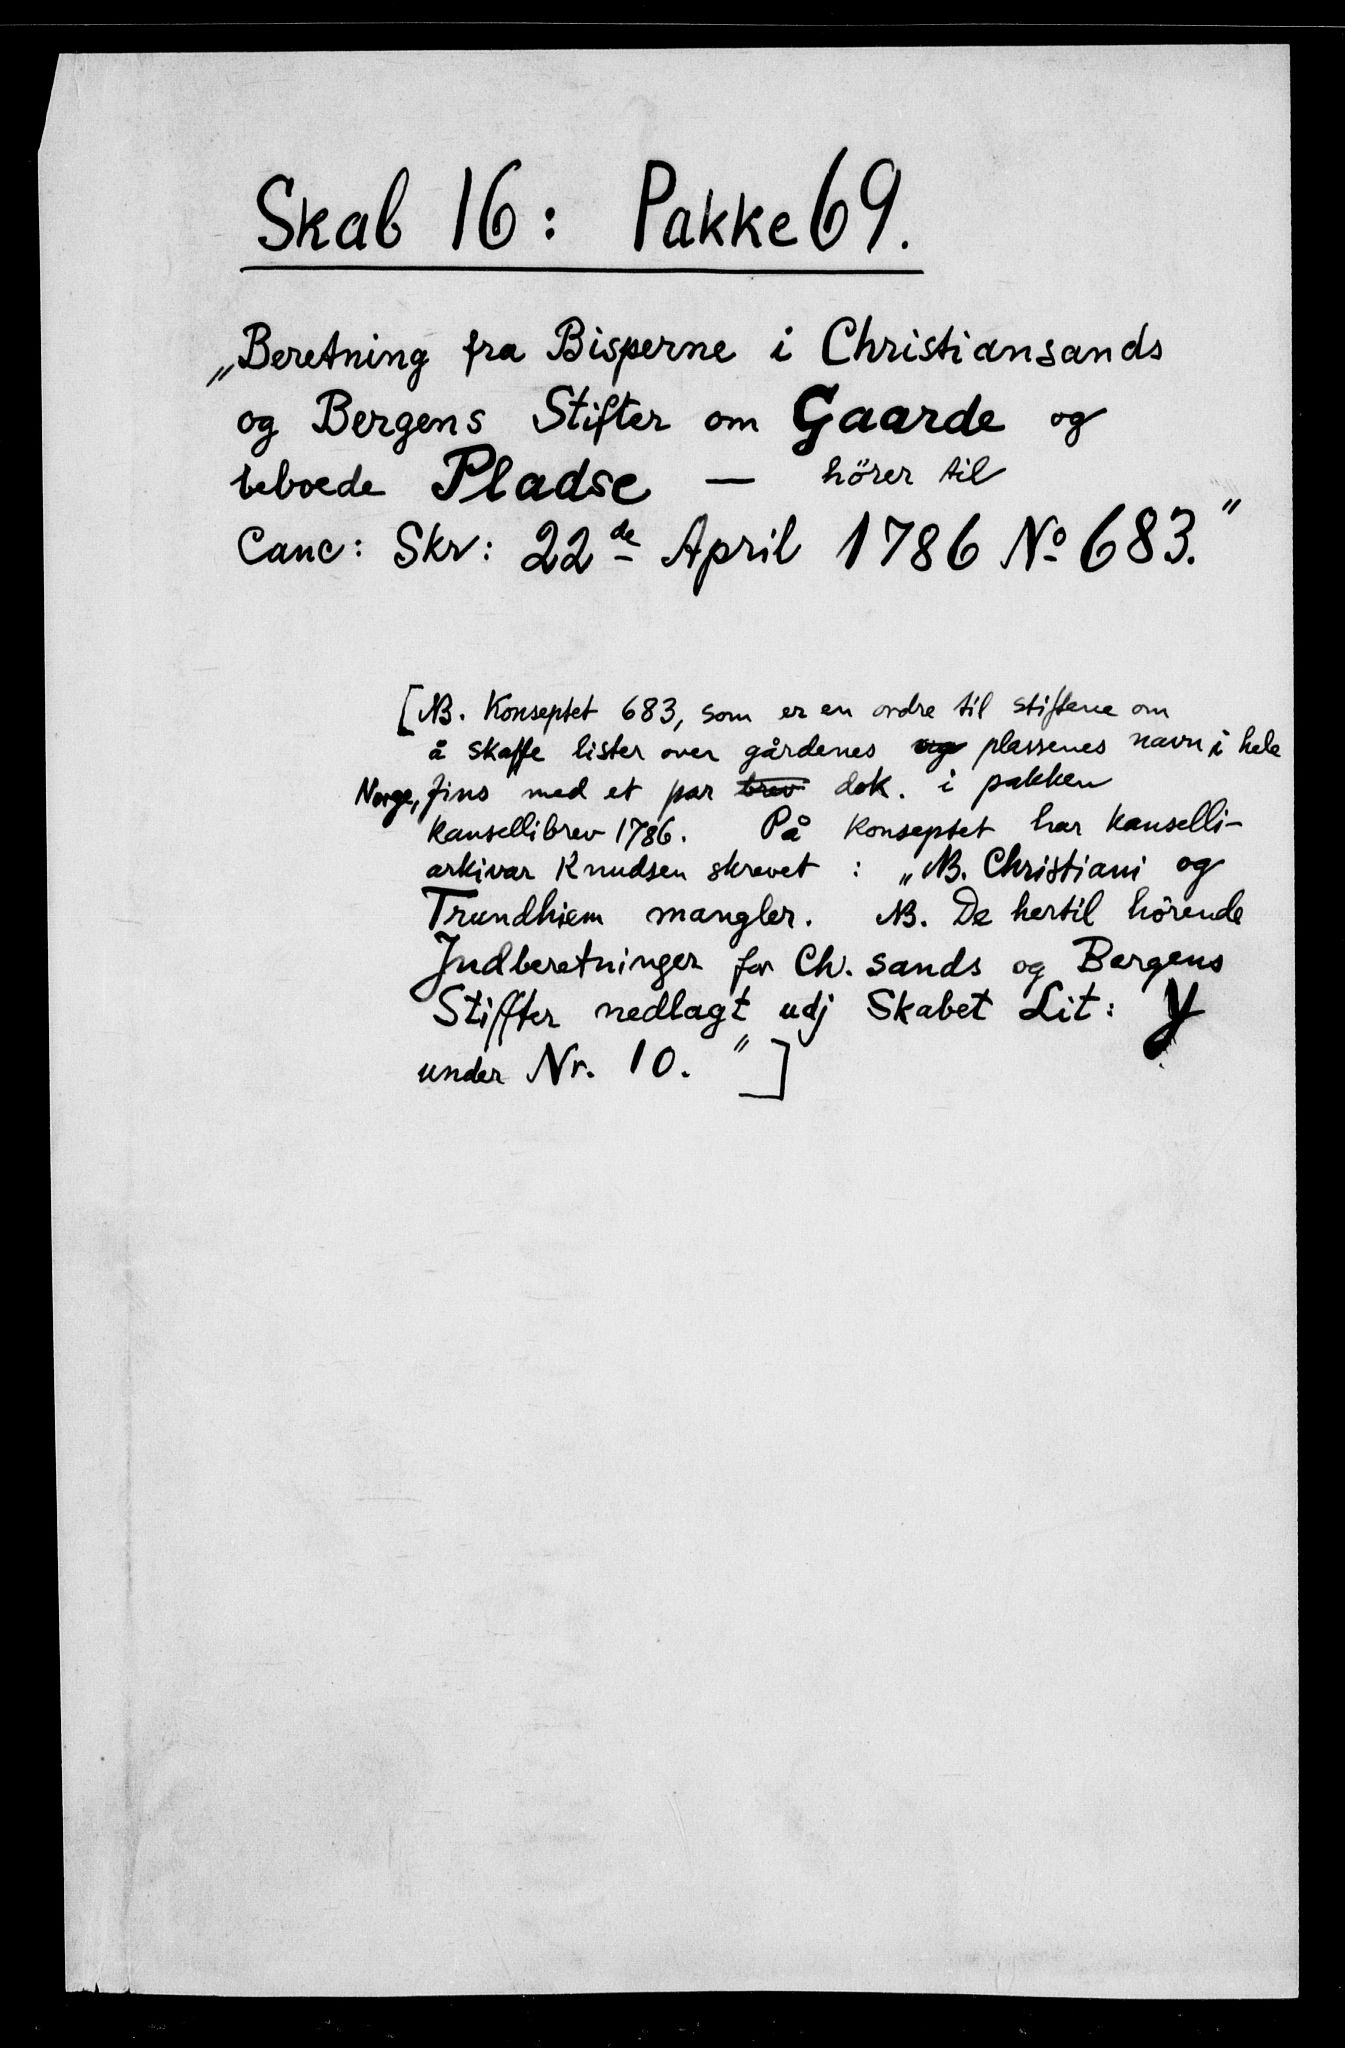 Skab 16: Pakke 69.
„Beretning fra Bisperne i Christiansands
og Bergens Stifter om Gaarde og
beboede Pladse — hörer til
Canc: Skr: 22de April 1786 No 683."
[NB. Konseptet 683, som er en ordre til stiftene om
å skaffe lister over gårdenes og plassenes navn i hele
Norge, fins med et par brev dok. i pakken
kansellibrev 1786. På konseptet har kanselli-
arkivar Knudsen skrevet : „NB. Christiani og
Trundhiem mangler. NB. De hertil hörende
Jndberetninger for Ch. sands og Bergens
Stiffter nedlagt udj Skabet Lit: Y
under Nr. 10."]